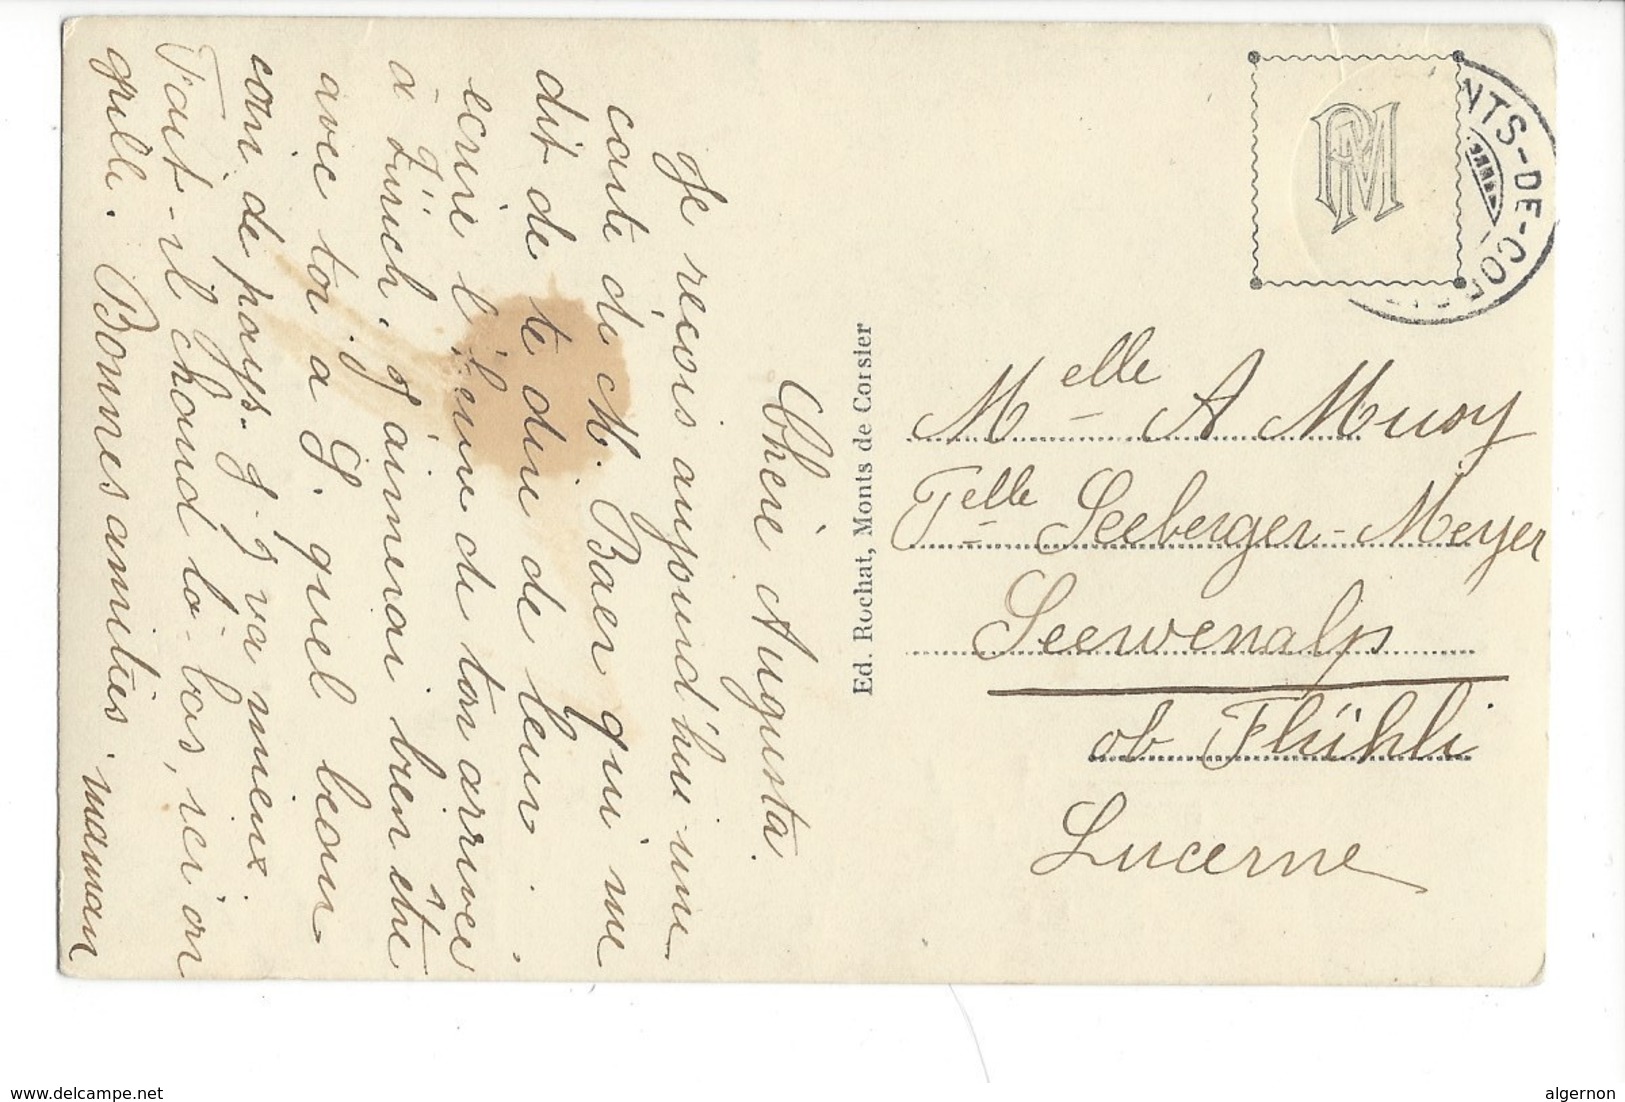 Chère Augusta.
Je reçois aujourd'hui une
carte de M. Baer qui me
dit de te dire de leur
ecrire l'heure de ton arrivée
à Zürich. J'aimerai bien être
avec toi à S. quel beau
coin de pays. J. J va mieux.
Fait-il chaud là-bas, ici on
grille. Bonnes amitiés. maman
Ed. Rochat, Monts de Corsier
PRM
NTS-DE-CORSIER
Melle A Muoy
Pelle Seeberger-Meyer
Seewenalp
ob Flühli
Lucerne
www.delcampe.net
algernon